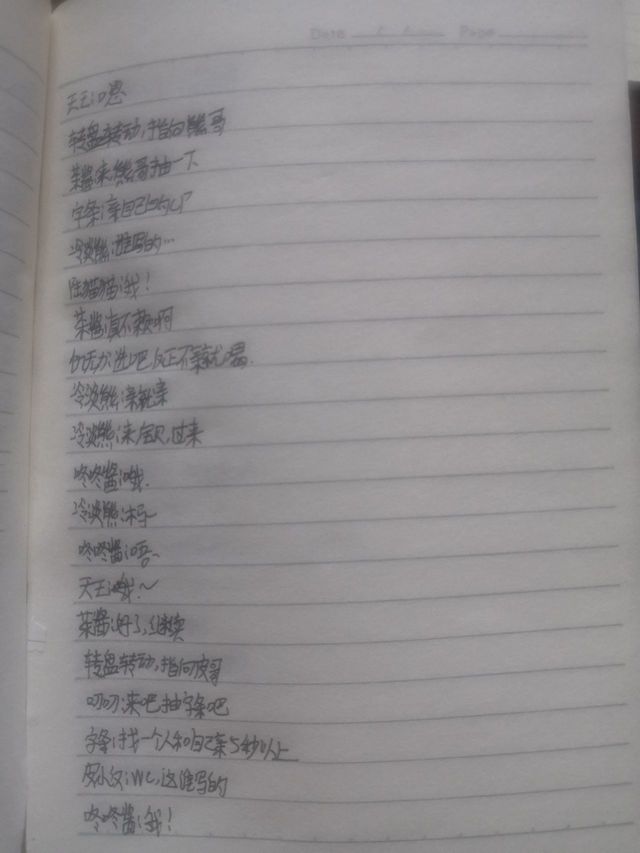 Date Page
天王:嗯
转盘转动,指向熊哥
茶酱:来,熊哥抽一下
字条:亲自己的CP
冷淡熊:谁写的…
陆猫猫:我!
茶酱:真不歉啊
选吧 反正不亲就喝.
冷淡熊:亲就亲
冷淡熊:来,宝贝,过来
咚咚酱:哦.
冷淡熊:木吗~
咚咚酱:唔~
天王:哦~
茶酱:好了,继续
转盘转动,指向皮哥
叨叨:来吧抽字条吧
字条:找一个人和自己亲5秒以上
皮小汉:WC,这谁写的
咚咚酱:我!